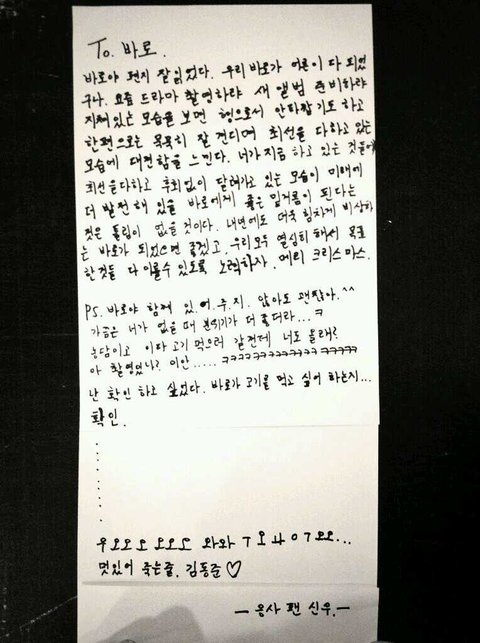 To. 바로.
바로야 편지 잘읽었다. 우리 바로가 어른이 다 되었
구나. 요즘 드라마 촬영하랴 새 앨범 준비하랴
지쳐있는 모습을 보면 형으로서 안타깝기도 하고
한편으로는 묵묵히 잘 견디며 최선을 다하고 있는
모습에 대견함을 느낀다. 너가 지금 하고 있는 것들에
최선을다하고 후회없이 달려가고 있는 모습이 미래에
더 발전해 있을 바로에게 좋은 밑거름이 된다는
것은 틀림이 없을 것이다. 내년에도 더욱 힘차게 비상하
는 바로가 되었으면 좋겠고, 우리모두 열심히 해서 목표
한것들 다 이룰수 있도록 노력하자. 메리 크리스마스.
PS. 바로야 함께 있.어.주.지. 않아도 괜찮아.^^
가끔은 너가 없을때 분위기가 더 좋더라...ㅋ
농담이고 이따 고기 먹으러 갈껀데 너도 올래?
아 촬영있나? 미안..... ㅋㅋㅋㅋㅋㅋㅋㅋㅋㅋㅋㅋㅋ ㅋㅋㅋㅋㅋ
난 확인 하고 싶었다. 바로가 고기를 먹고 싶어 하는지...
확인.
우오오오 오오오 와와 ㄱ오ㅏㅇㄱ오오...
멋있어 죽는줄. 김동준♡
- 응사 팬 신우. -